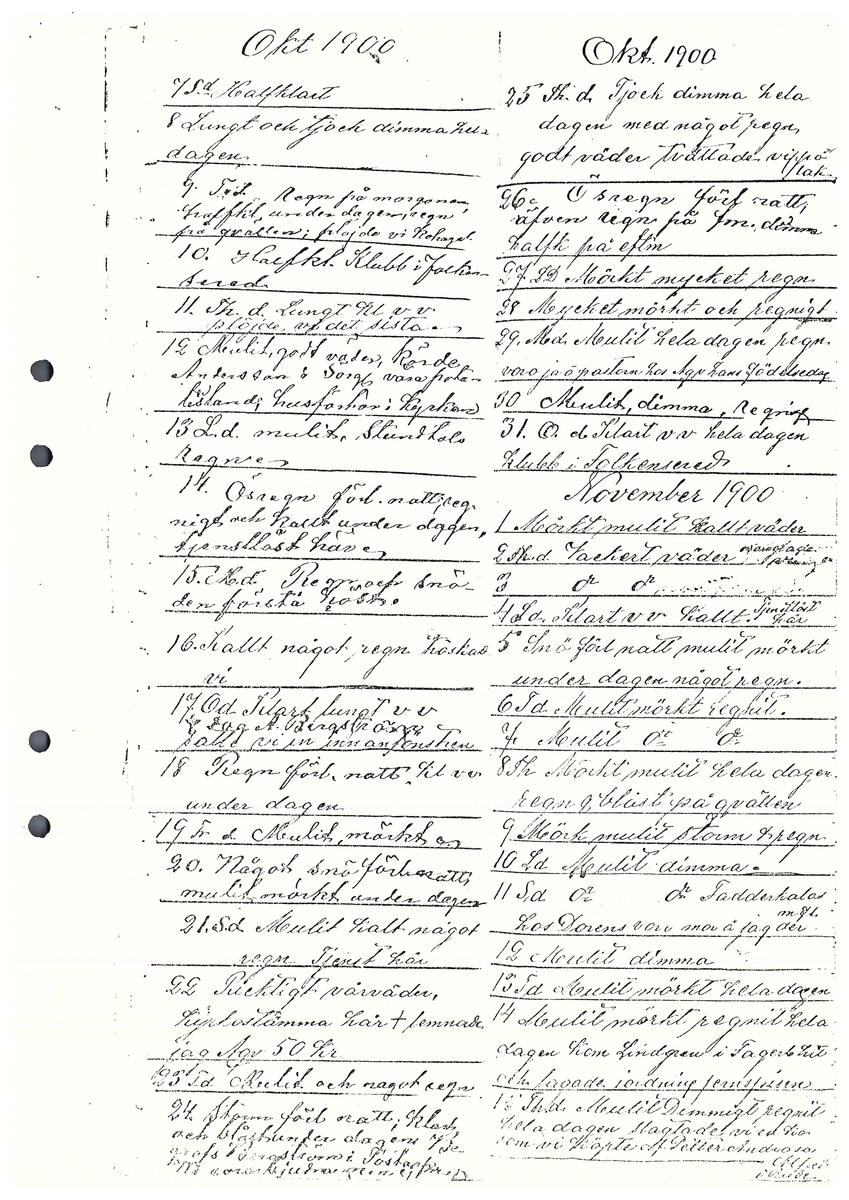 Okt 1900
7 Sd Halfklart
8 Lungt och tjock dimma hela
dagen
9. Tisd. Regn på morgonen
halfkl. under dagen, regn
på qvällen; plöjde vi
10. Halfkl. Klubb i Folken-
sered
11. Th. d. Lungt kl v v
plöjde vi det sista
12 Mulit, godt väder, körde
Andersson &
husförhör i kyrkan
13 L.d. mulit, Stundtals
regne
14. Ösregn förl. natt, reg-
nigt och kallt under dagen,
tjenstlöst här
15. M.d. Regn och snö
den första i höst.
16. Kallt något regn
vi
17. Od Klart lungt v v
A. Bergström
satte vi in innanfönstren
18 Regn förl. natt. kl v v
under dagen
19 Fr d Mulit, mörkt
20. Något snö förl natt,
mulit mörkt under dagen
21. S.d Mulit kalt något
regn Tjenst här
22 Riktigt vårväder,
Kyrkostämma här + lemnade
jag Agv 50 kr
23 Td Mulit och något regn
24. Storm förl natt, klart
och blåst under dagen
Bergström i
Okt. 1900
25 Th. d. Tjock dimma hela
dagen med något regn,
godt väder tvättade vi på
tak
26 Ösregn förl natt,
äfven regn på fm. dimma
halfk på eftm
27 LD Mörkt mycket regn
28 Mycket mörkt och regnigt
29. Md. Mulit hela dagen regn
voro ja å pastorn hos Agv hans födelsedag
30 Mulit, dimma, regnigt
31. O. d. Klart v v hela dagen
klubb i Folkensered
November 1900
1 Mörkt mulit kallt väder
2 Th. d. Vackert väder
3 do do
4 Sd. Klart v v kallt. Tjenstlöst
här
5 Snö förl natt mulit mörkt
under dagen något regn.
6 Td Mulit mörkt regnit.
7 Mulit do do
8 Th Mörkt mulit hela dagen
regn o, blåst på qvällen
9 Mörk mulit storm & regn
10 Ld Mulit dimma.
11 S.d do do Fadderkalas
hos Dorens voro mor å jag der
12 Mulit dimma
13 Td Mulit mörkt hela dagen
14 Mulit mörkt regnit hela
dagen kom Lindgren i Fagerb. hit
och lagade iordning jernspisen
15 Th.d. Mulit Dimmigt regnit
hela dagen slagtade vi en ko
som vi köpte af Petter Andreas